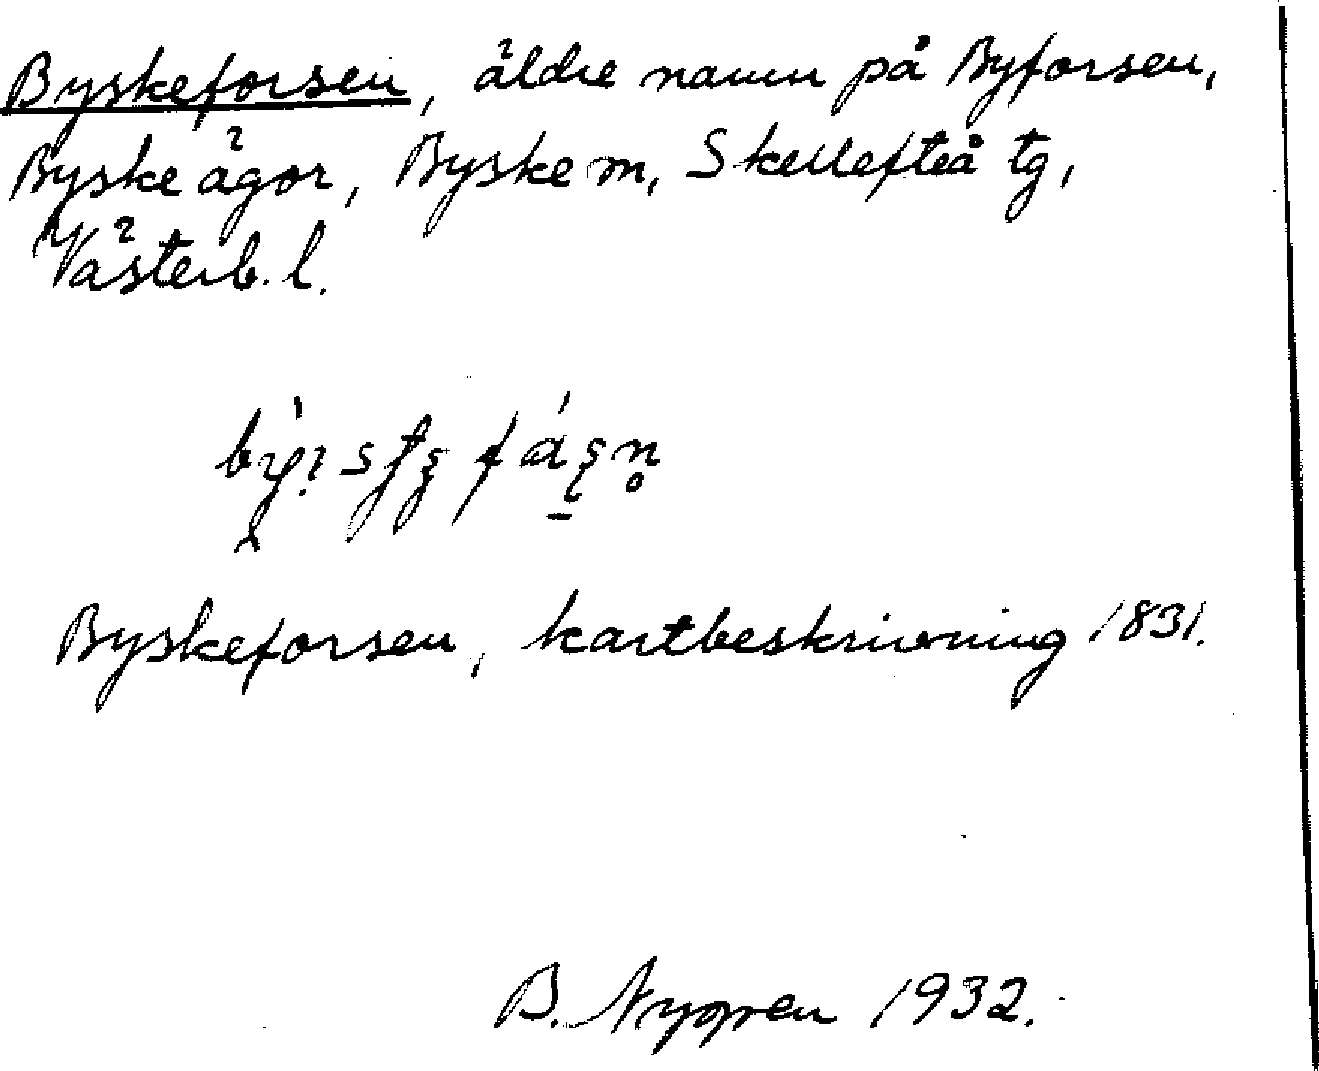 Byskeforsen, äldre namn på Byforsen,
Byske ägor, Byske m, Skellefteå tg,
Västerb. l.
Byskeforsen, kartbeskrivning 1831.
B. Nygren 1932.